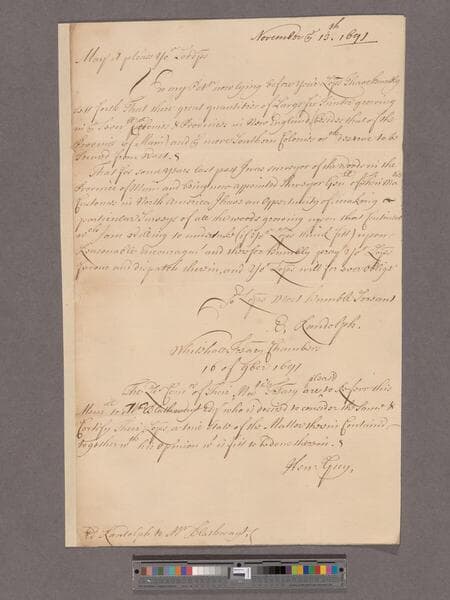 November ye 13.th 1691
May it please Yor Lordps
In my Petn now lying before Your Lops I have humbly
sett forth That their great quantities of Large fir Timber growing
in ye Severll Colonies & Provinces in New England besides that of the
Province of Main and ye more Southern Colonies wch deserve to be
Secured from Wast.
That for Some years last past I was Surveyor of the Woods in the
Province of Main and being now appointed Surveyor Genll of their Mats
Customes in North America I have an Oppertunity of making a
particular Survey of all the Woods growing upon that Continent
wch I am willing to undertake (if Yor Lops think fitt) upon
Reasonable Encouragmt and therefore humbly pray Yor Lops
favour and dispatch therein, and Yor Lops will for ever oblige
Yor Lops Most humble Servant
Ed. Randolph.
Whitehall Treary Chambers
16 of 9ber 1691
The Rt Honble of Their Mats Treary are pleasd to Referr this
Meml to Wm Blathwayt Esqr who is desired to consider the Same &
Certify their Lops a true state of the Matter therein Contained
together wth his Opinion wt is fitt to be done therein.
Hen: Guy,
Ed Randolph to Mr Blathwayt